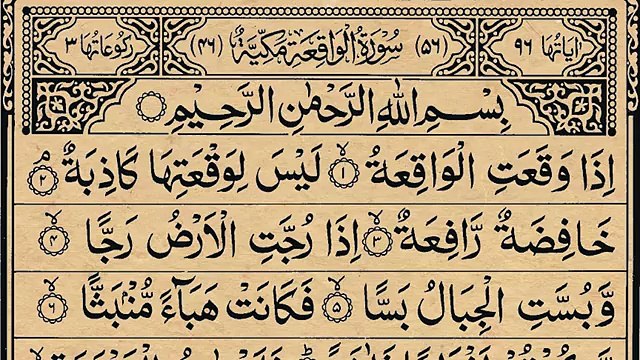 اٰیَاتُهَا ۹۶ (۵۶) سُوْرَةُ الْوَاقِعَةِ مَكِّيَّةٌ (۴۶) رُكُوْعَاتُهَا ۳
بِسْمِ اللّٰهِ الرَّحْمٰنِ الرَّحِيْمِ
اِذَا وَقَعَتِ الْوَاقِعَةُ ۙ‏﴿۱﴾ لَيْسَ لِوَقْعَتِهَا كَاذِبَةٌ ۘ‏﴿۲﴾
خَافِضَةٌ رَّافِعَةٌ ۙ‏﴿۳﴾ اِذَا رُجَّتِ الْاَرْضُ رَجًّا ۙ‏﴿۴﴾
وَّبُسَّتِ الْجِبَالُ بَسًّا ۙ‏﴿۵﴾ فَكَانَتْ هَبَآءً مُّنْۢبَثًّا ۙ‏﴿۶﴾